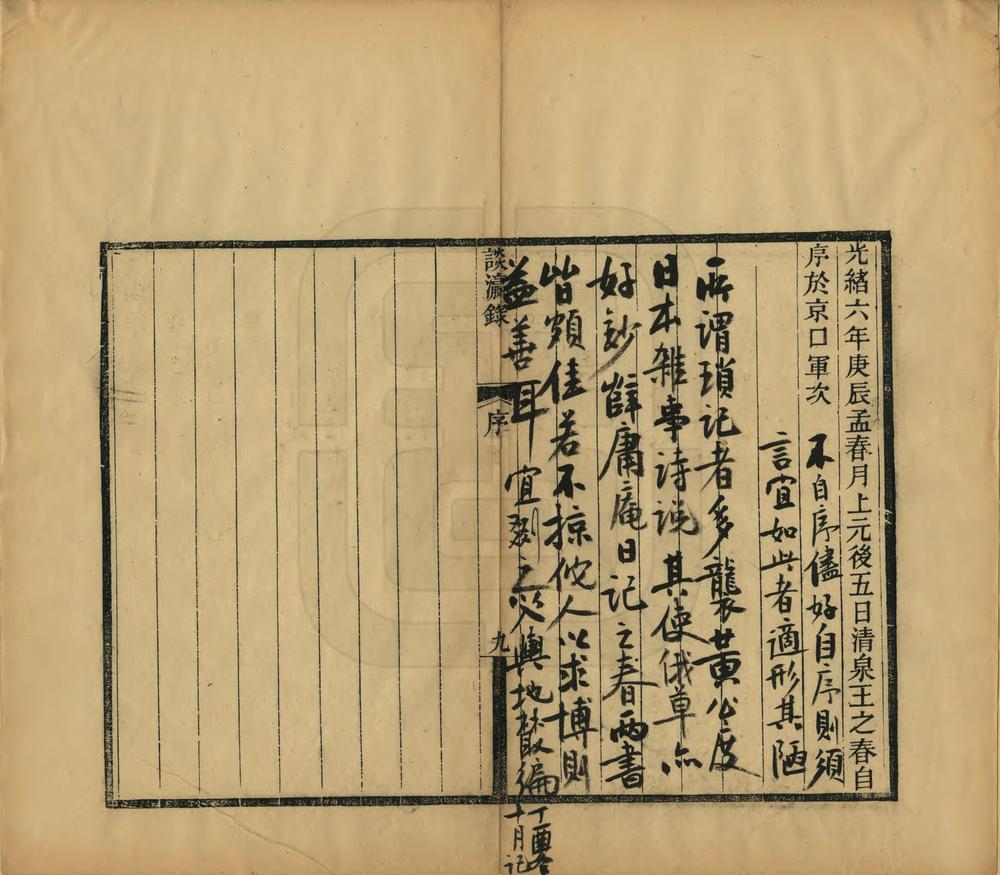 光緒六年庚辰孟春月上元後五日清泉王之春自
序於京口軍次
不自序儘好自序則須
言宜如此者適形其陋
所謂瑣記者多襲黃公度
日本雜事詩說其使俄草亦
好鈔薛庸庵日記之春兩書
皆頗佳若不掠他人以求博則
益善耳宜劉之以輿地叢編
丁酉冬
十月記
談瀛錄
序
九